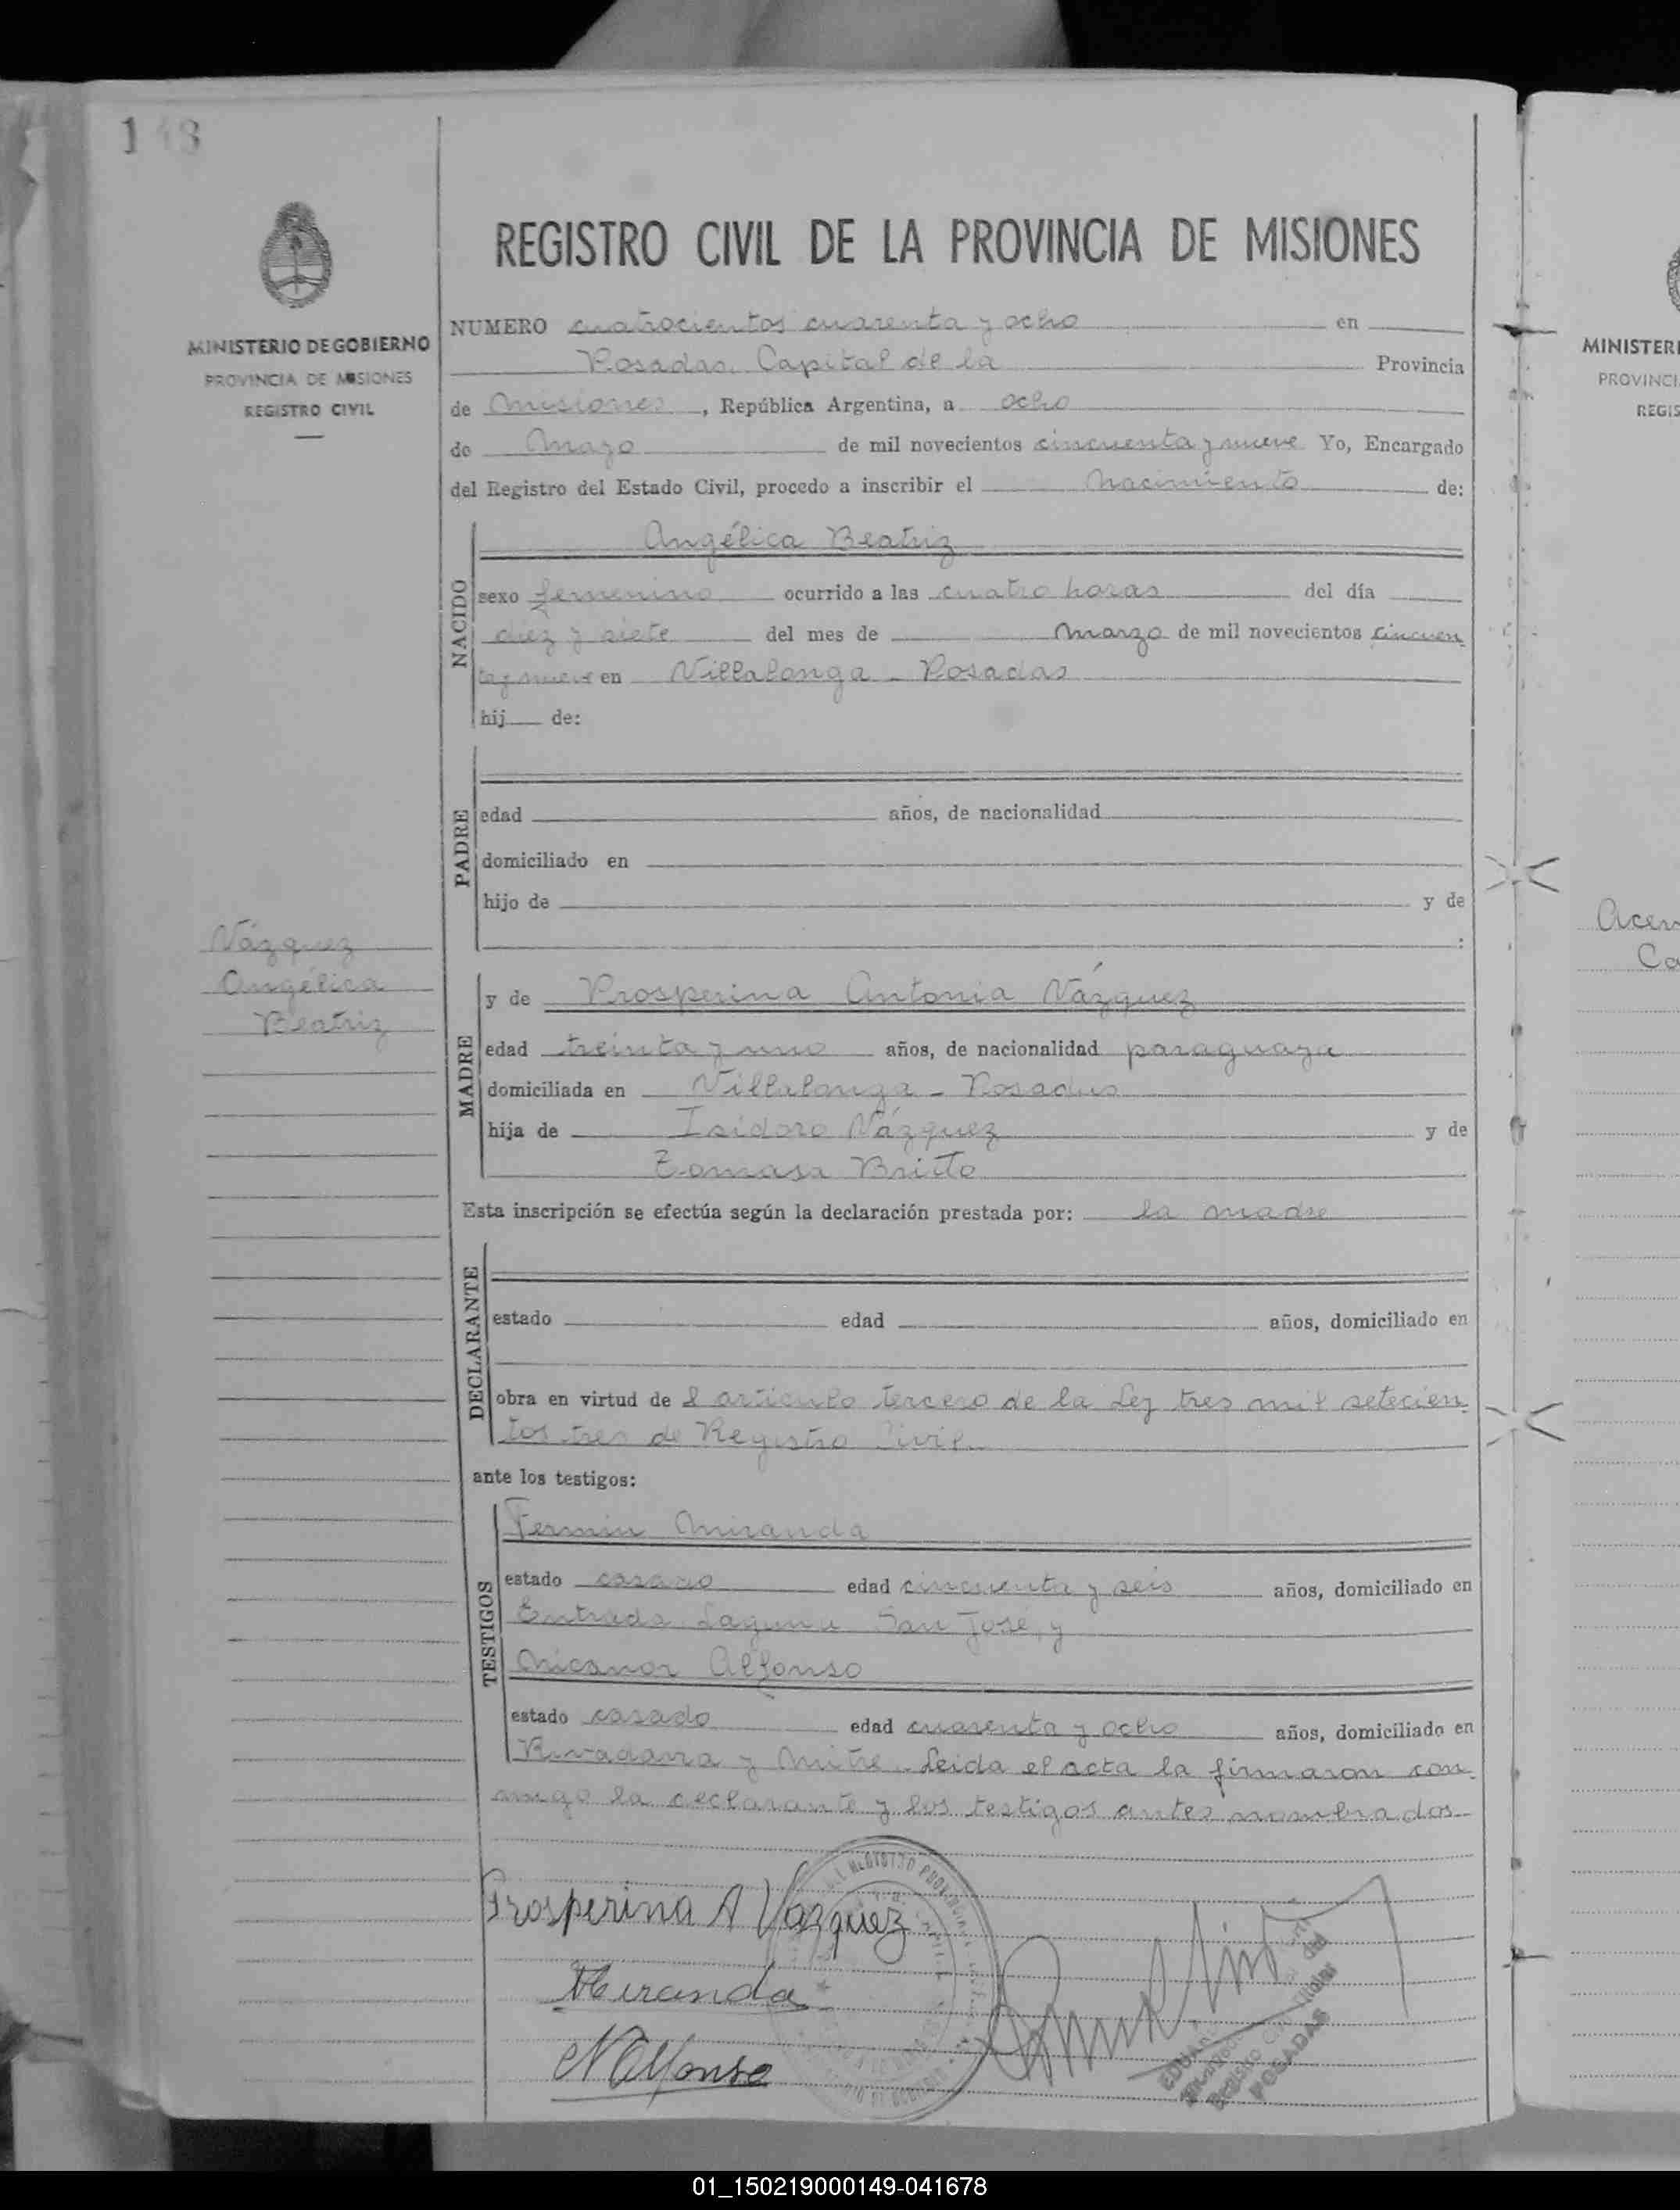 1 48
REGISTRO CIVIL DE LA PROVINCIA DE MISIONES
MINISTERIO DE GOBIERNO
PROVINCIA DE MISIONES
REGISTRO CIVIL
NUMERO cuatrocientos cuarenta y ocho en
Posadas, Capital de la Provincia
de Misiones, República Argentina, a ocho
de Mayo de mil novecientos cincuenta y nueve Yo, Encargado
del Registro del Estado Civil, procedo a inscribir el nacimiento de:
NACIDO
Angélica Beatriz
sexo femenino ocurrido a las cuatro horas del día
diez y siete del mes de Marzo de mil novecientos cincuen
ta y nueve en Villalonga - Posadas
hij de:
PADRE
edad años, de nacionalidad
domiciliado en
hijo de y de
:
Vázquez
Angélica
Beatriz
MADRE
y de Prosperina Antonia Vázquez
edad treinta y uno años, de nacionalidad paraguaya
domiciliada en Villalonga - Posadas
hija de Isidoro Vázquez y de
Tomasa Britto
Esta inscripción se efectúa según la declaración prestada por: la madre
DECLARANTE
estado edad años, domiciliado en
obra en virtud de l artículo tercero de la Ley tres mil setecien
tos tres de Registro Civil
ante los testigos:
TESTIGOS
Fermin Miranda
estado casado edad cincuenta y seis años, domiciliado en
Entrada Laguna San José, y
Nicanor Alfonso
estado casado edad cuarenta y ocho años, domiciliado en
Rivadavia y Mitre. Leida el acta la firmaron con
migo la declarante y los testigos antes nombrados
Prosperina A Vazquez
Miranda
N Alfonso
POSADAS
MINISTERI
PROVINCI
REGIS
Acev
Ca
01_150219000149-041678